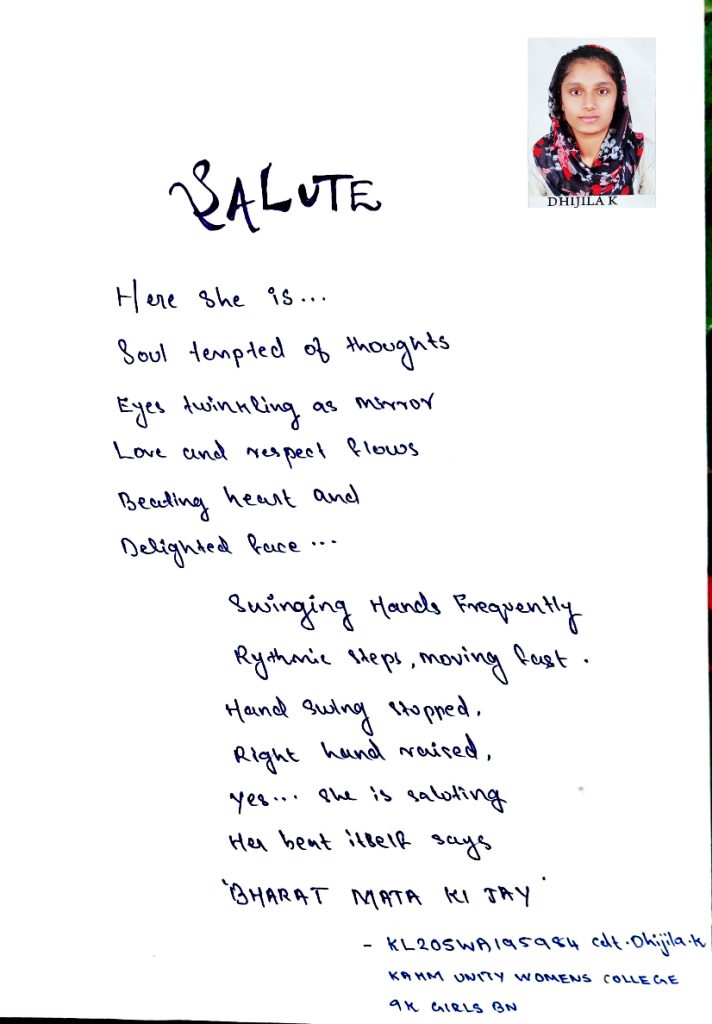 DHIJILA K
SALUTE
Here she is...
Soul tempted of thoughts
Eyes twinkling as mirror
Love and respect flows
Beating heart and
Delighted face...
Swinging Hands Frequently
Rythmic steps, moving fast.
Hand swing stopped,
Right hand raised,
Yes... she is saluting
Her beat itself says
'BHARAT MATA KI JAY'
- KL20SWA195984 Cdt. Dhijila.K
KAHM UNITY WOMENS COLLEGE
9K GIRLS BN